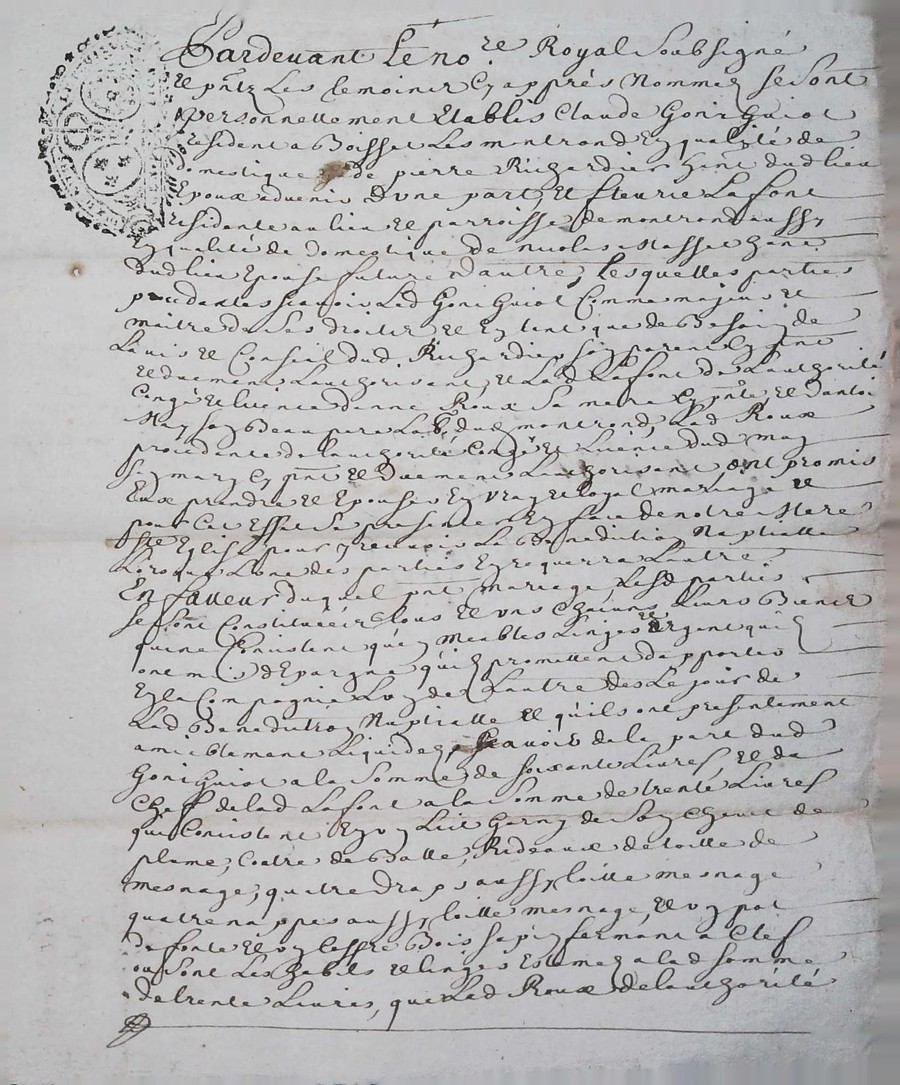 Pardevant Le no.re Royal Soubsigné
et pntz Les temoins Cy apprés Nommez se sont
personnellement Etablis Claude Goni Guiot
résident a Boisset Les montrond Ey qualité de
domestique de pierre Richardier hant dud lieu
Epoux advenir D'une part, Et fleurie La font
résidente au lieu et parroisse de montrond aussy
Ey qualité de domestique de nicolas Masset
dud lieu Epouse future d'autre, Lesquelles parties
procedantes scavoir Led Goni Guiot Comme majeur et
maitre de ses droits et Ey tent que de Besoin de
Lavis et Conseil dud Richardier soy parein Cy pnt
et duement Lauthorisant, et Lad Lafont de Lauthorité
Congé et licence danne Roux sa mere Cy pnte et dantoi
May soy Beau pere Lab. dud montrond, Lad Roux
procedante de lauthorité Congé et Licence dud may
soy mary Cy pnt et Duement Lauthorisant, ont promis
Eux prendre et Epouser Ey vray et loyal mariage et
pour Cet Effet se presenter Ey face de notre Mere
Ste Eglise pour y recevoir La Benediction Nuptialle
Lorque Lune des parties Ey requerra Lautre
En faveur duquel pnt mariage Lesd parties
se sont Constituées tous et uns Chacuns Leurs Biens
qui ne Concistent qu'ey meubles Linges et argent qu'il
ont d'Epargne qu'il promettent dapporter
Ey la Compagnie Luy de Lautre des Le jour de
Lad Benediction Nuptialle et qu'ils ont presentement
amiablement Liquidez, scavoir de la part dud
Goni Guiot a la Somme de soixante Livres et du
Cheff de lad Lafont a la somme de trente Livres
qui Concistent Ey uy Lit Garny de soy Chevet de
plume, Coitre de Balle, Rideaux de toille de
mesnage, quatre draps aussy toille mesnage
quatre nappes aussy toille mesnage, et uy pot
de fonte et uy Coffre Bois sapiy fermant a Clef
ou sont Les habits et linges Estimez a lad somme
de trente Livres, que Lad Roux de lauthorité